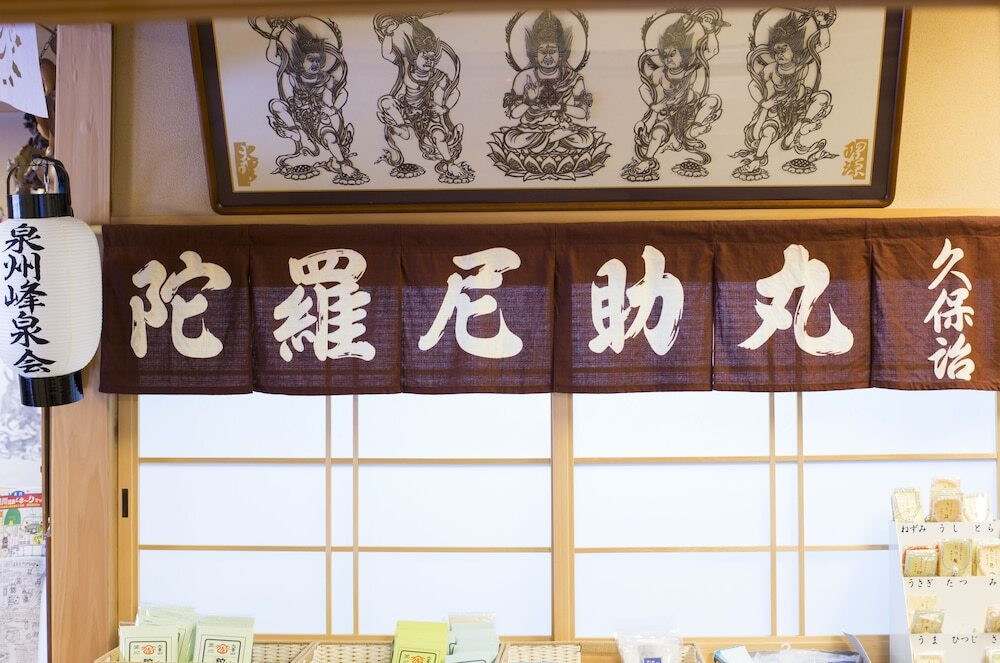 陀羅尼助丸
久保治
泉州峰泉会
ねずみ うし とら
うさぎ たつ み
うま ひつじ さ